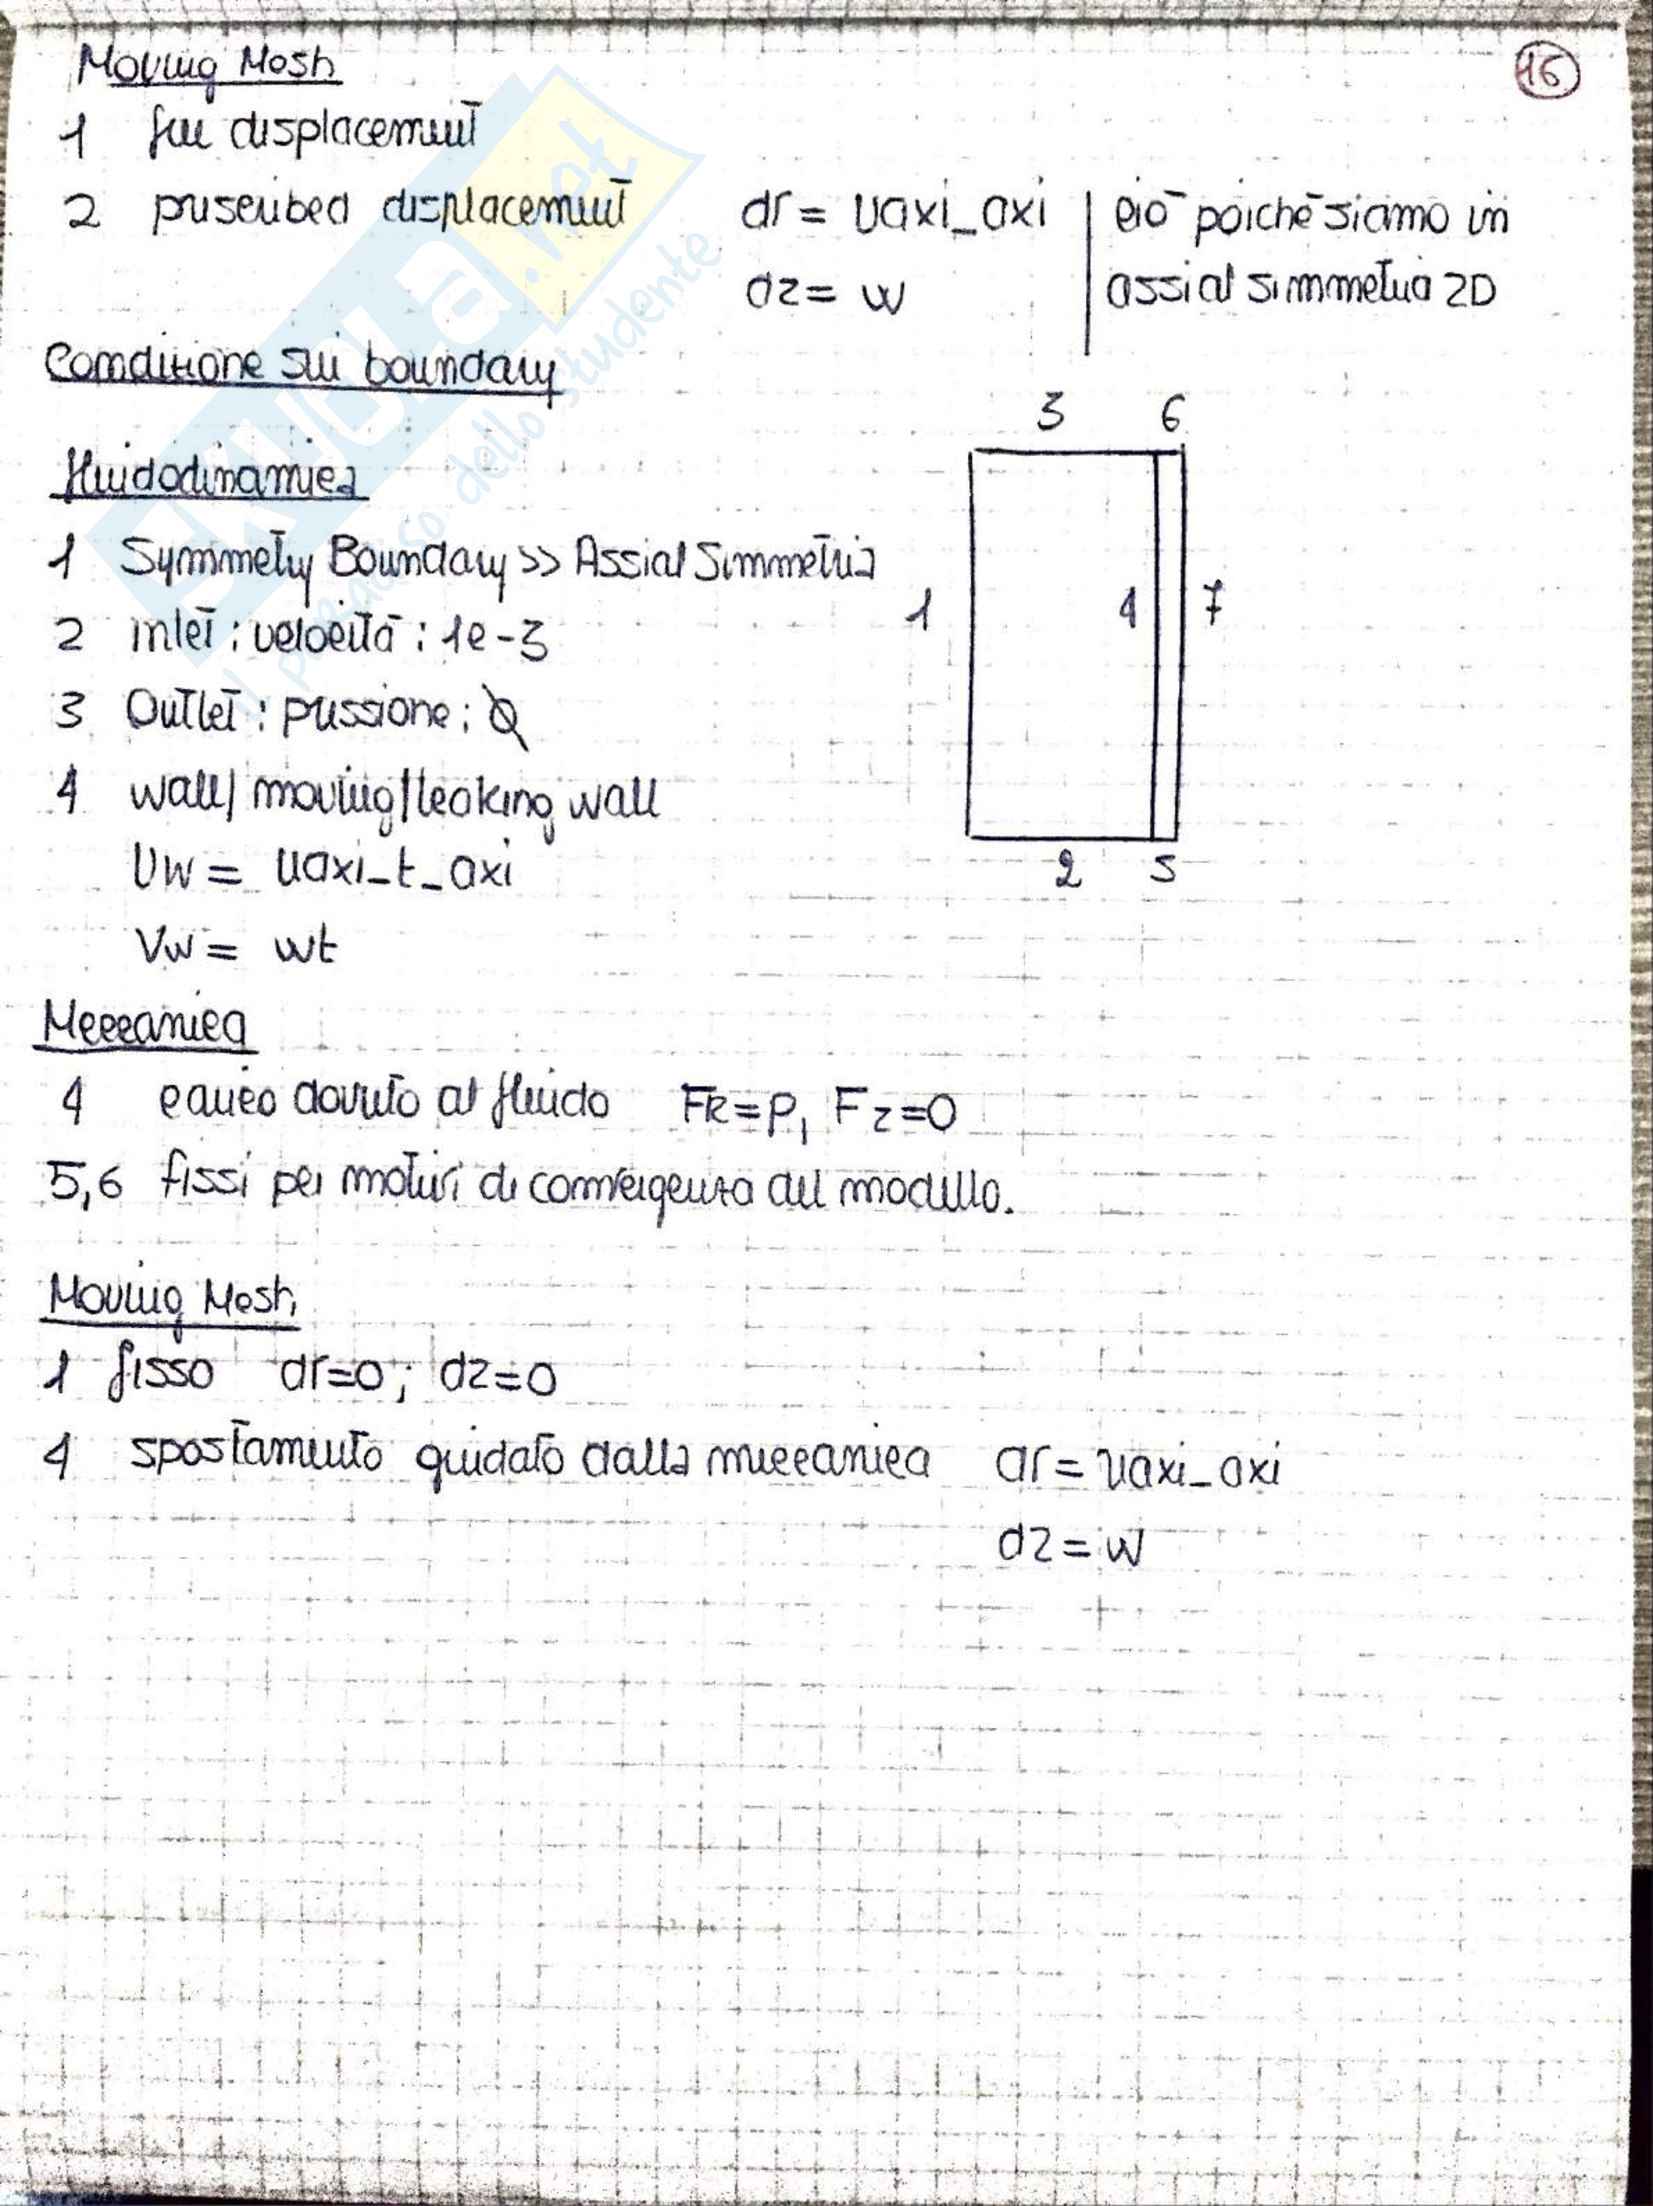 Moving Mesh
16
1 free displacement
2 prescribed displacement dr = uaxi_axi | ciò poiché siamo in
dz = w | assial simmetria 2D
Condizione sui boundary
3 6
fluidodinamica
1 Symmetry Boundary >> Assial Simmetria
1 4 7
2 inlet : velocità : 1e-3
3 Outlet : pressione : 0
4 wall/ moving/leaking wall
Uw = uaxi_t_axi
2 5
Vw = wt
Meccanica
4 carico dovuto al fluido FR=P, Fz=0
5,6 fissi per motivi di convergenza del modello.
Moving Mesh
1 fisso dr=0; dz=0
4 spostamento guidato dalla meccanica dr = uaxi_axi
dz = w
SKUOLA.net
il paradiso dello studente